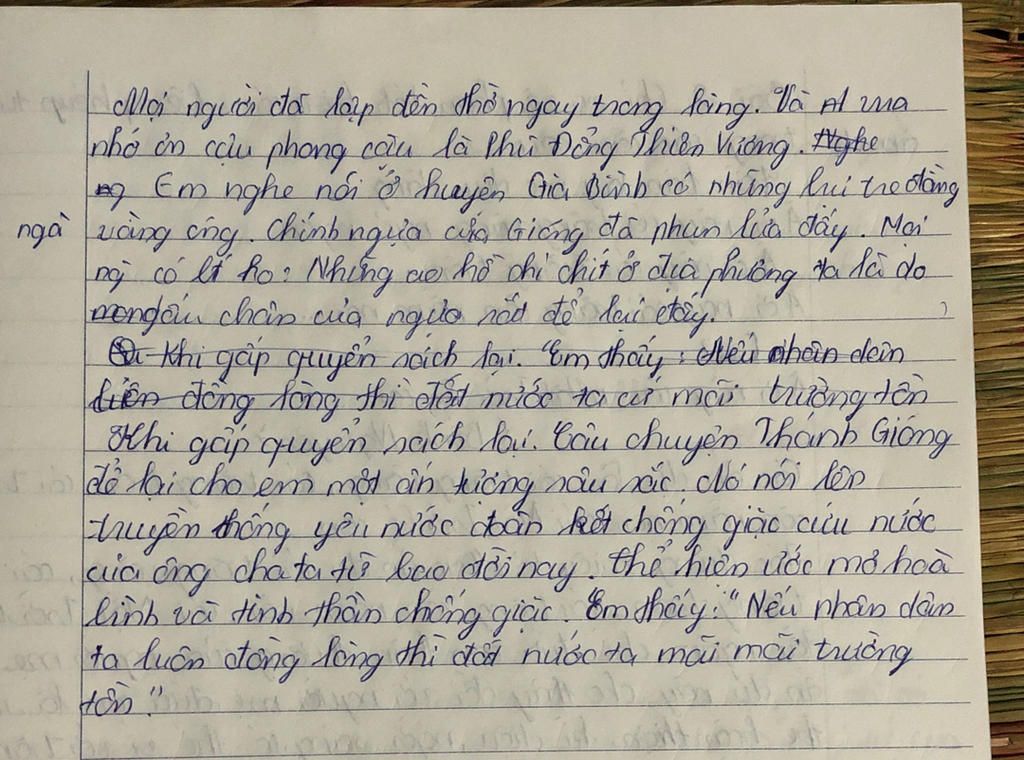 Mọi người đã lập đền thờ ngay trong làng. Và vua
nhớ ơn cậu phong cậu là Phù Đổng Thiên Vương. Nghe
ng Em nghe nói ở huyện Gia Bình có những bụi tre đằng
ngà
vàng óng. Chính ngựa của Giống đã phun lửa đấy. Mọi
có ao hồ chi chít ở địa phương ta là do
dấu chân của ngựa sắt để lại đấy.
Khi gấp quyển sách lại. Em thấy: Nếu nhân dân
đồng lòng thì đất nước ta cứ mãi trường tồn
Khi gấp quyển sách lại. Câu chuyện Thánh Gióng
để lại cho em một ấn tượng sâu sắc. Nó nói lên
truyền thống yêu nước đoàn kết chống giặc cứu nước
của ông cha ta từ bao đời nay. Thể hiện ước mơ hoà
bình và tinh thần chống giặc. Em thấy: "Nếu nhân dân
ta luôn đồng lòng thì đất nước ta mãi mãi trường
tồn."